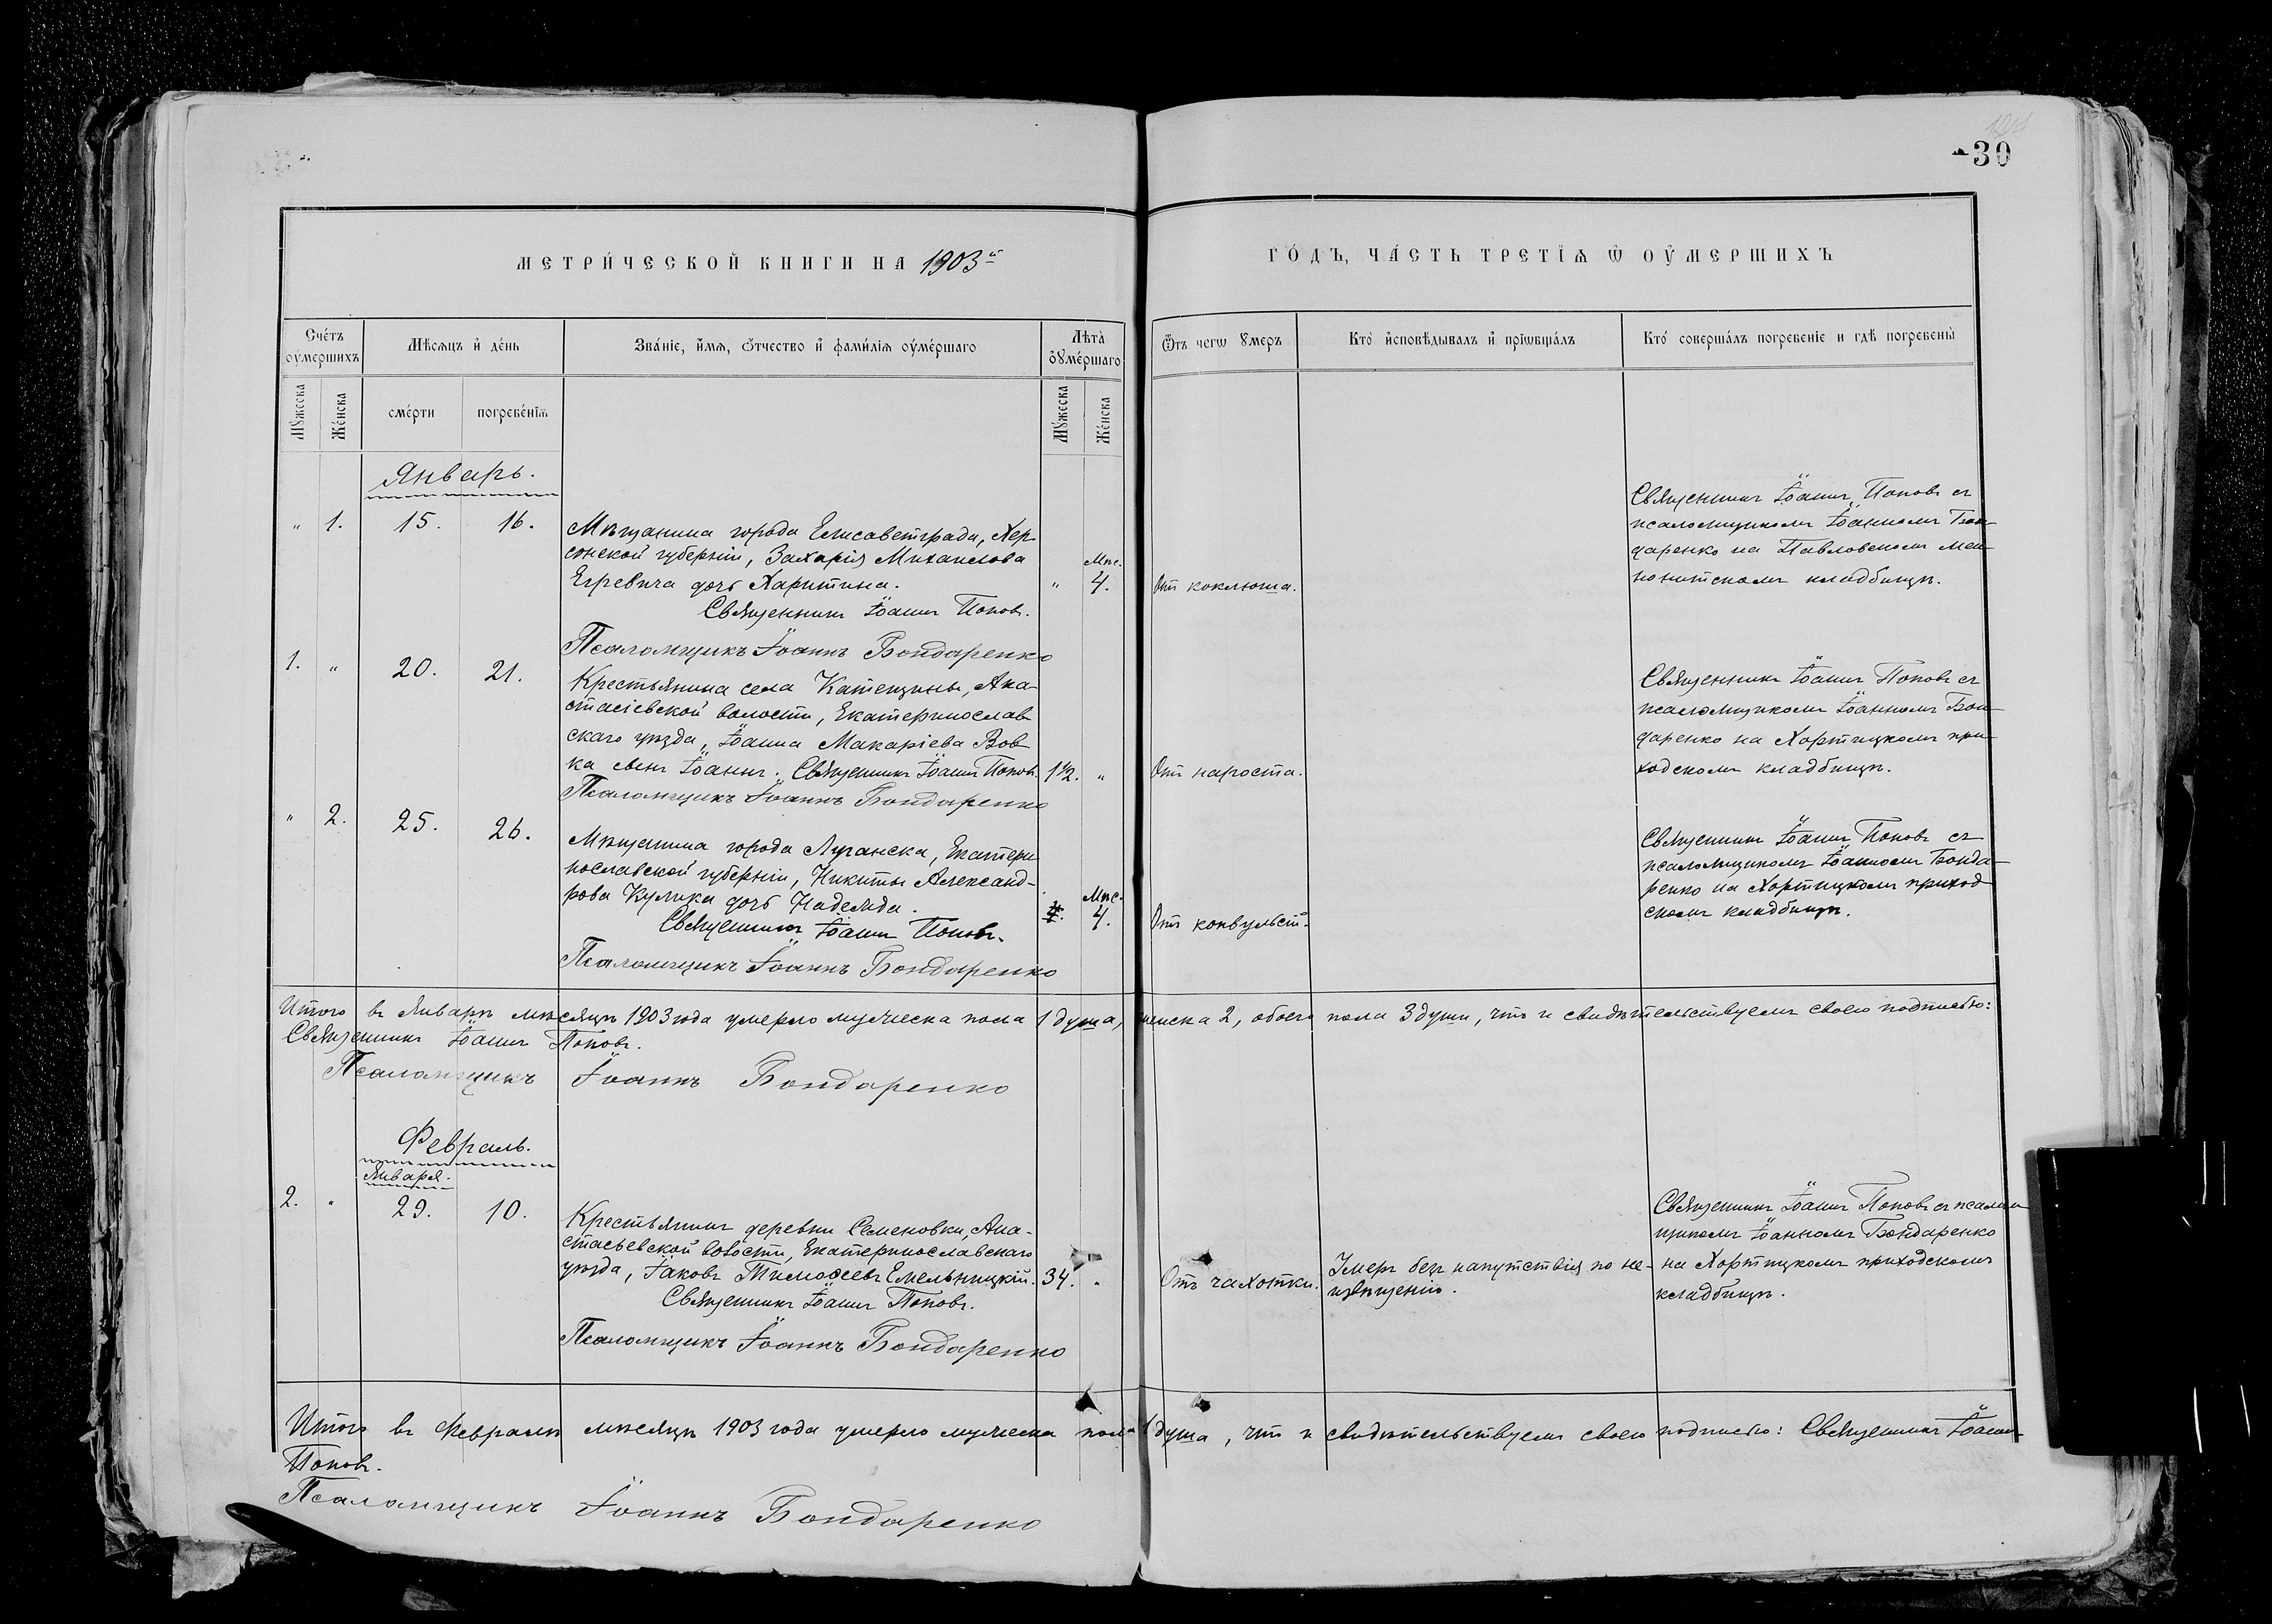 30
МЕТРИ́ЧЕСКОЙ КНИГИ НА 1903й
ГО́ДЪ, ЧА́СТЬ ТРЕТІѦ Ѡ ОУ҆МЕРШИХЪ
Сче́тъ оу҆́мершихъ
Мѣсѧцъ и҆ де́нь
Зва́ніе, и҆́мѧ, о҆́тчество и҆ фами́ліѧ оу҆ме́ршаго
Лѣта̀ оу҆ме́ршаго
Ѿъ чегѡ ꙋмеръ
Кто̀ и҆сповѣдывалъ и҆ прїѡбща́лъ
Кто́ соверша́лъ погребеніе и гдѣ погребены̀
Мꙋжеска
Же́нска
сме́рти
погребе́нїѧ
Мꙋжеска
Же́нска
Январь.
" 1. 15. 16.
Мѣщанина города Елисаветграда, Хер-
сонской губерніи, Захарія Михаилова
Егревича дочь Харитина.
Священникъ Іоаннъ Поповъ.
Псаломщикъ Іоаннъ Бондаренко
" Мѣс. 4.
Отъ коклюша.
Священникъ Іоаннъ Поповъ съ
псаломщикомъ Іоанномъ Бон-
даренко на Павловскомъ мен-
нонитскомъ кладбищѣ.
1. " 20. 21.
Крестьянина села Катещины, Ана-
стасіевской волости, Екатеринослав-
скаго уѣзда, Іоанна Макаріева Вов-
ка сынъ Іоаннъ. Священникъ Іоаннъ Поповъ.
Псаломщикъ Іоаннъ Бондаренко
1 1/2. "
Отъ нароста.
Священникъ Іоаннъ Поповъ съ
псаломщикомъ Іоанномъ Бон-
даренко на Хортицкомъ при-
ходскомъ кладбищѣ.
" 2. 25. 26.
Мѣщанина города Луганска, Екатери
нославской губерніи, Никиты Александ-
рова Кулика дочь Надежда.
Священникъ Іоаннъ Поповъ.
Псаломщикъ Іоаннъ Бондаренко
Мѣс. 4.
Отъ конвульсій.
Священникъ Іоаннъ Поповъ съ
псаломщикомъ Іоанномъ Бонда-
ренко на Хортицкомъ приход-
скомъ кладбищѣ.
Итого въ Январѣ мѣсяцѣ 1903 года умерло мужеска пола 1 душа, женска 2, обоего пола 3 души, что и свидѣтельствуемъ своею подписью:
Священникъ Іоаннъ Поповъ.
Псаломщикъ Іоаннъ Бондаренко
Февраль.
Января.
2. " 29. 10.
Крестьянинъ деревни Семеновки, Ана-
стасьевской волости, Екатеринославскаго
уѣзда, Іаковъ Тимоѳеевъ Емельницкій.
Священникъ Іоаннъ Поповъ.
Псаломщикъ Іоаннъ Бондаренко
34. "
Отъ чахотки.
Умеръ безъ напутствія по не-
извѣщенію.
Священникъ Іоаннъ Поповъ съ псалом
щикомъ Іоанномъ Бондаренко
на Хортицкомъ приходскомъ
кладбищѣ.
Итого въ Февралѣ мѣсяцѣ 1903 года умерло мужеска пола 1 душа, что и свидѣтельствуемъ своею подписью: Священникъ Іоаннъ
Поповъ.
Псаломщикъ Іоаннъ Бондаренко